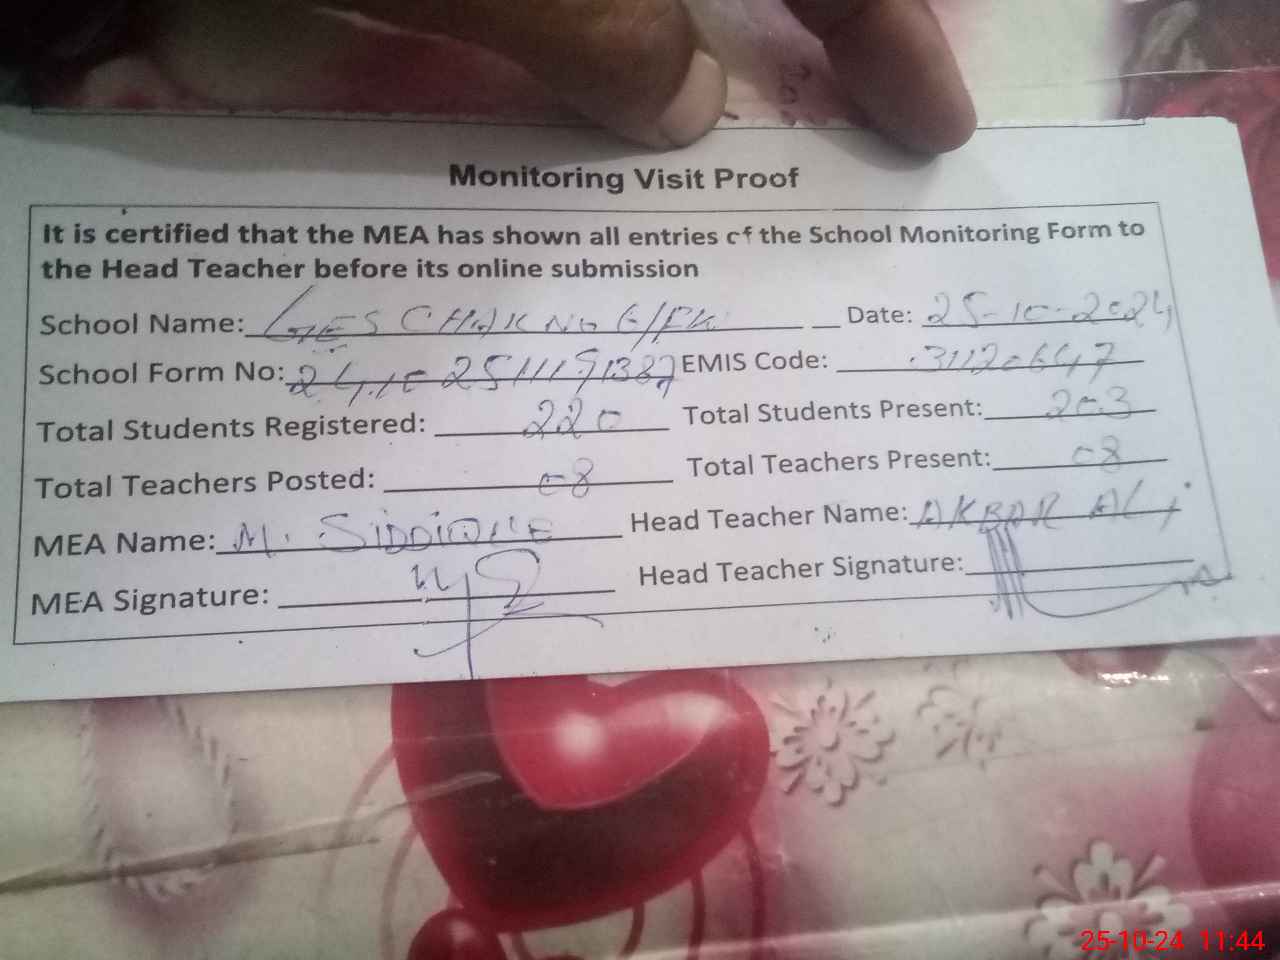 Monitoring Visit Proof
It is certified that the MEA has shown all entries of the School Monitoring Form to
the Head Teacher before its online submission
School Name: GES CHAK NO 6/FW Date: 25-10-2024
School Form No: EMIS Code: 31120647
Total Students Registered: 220 Total Students Present: 203
Total Teachers Posted: 08 Total Teachers Present: 08
MEA Name: M. SIDDIQUE Head Teacher Name: AKBAR ALI
MEA Signature: Head Teacher Signature:
25-10-24 11:44